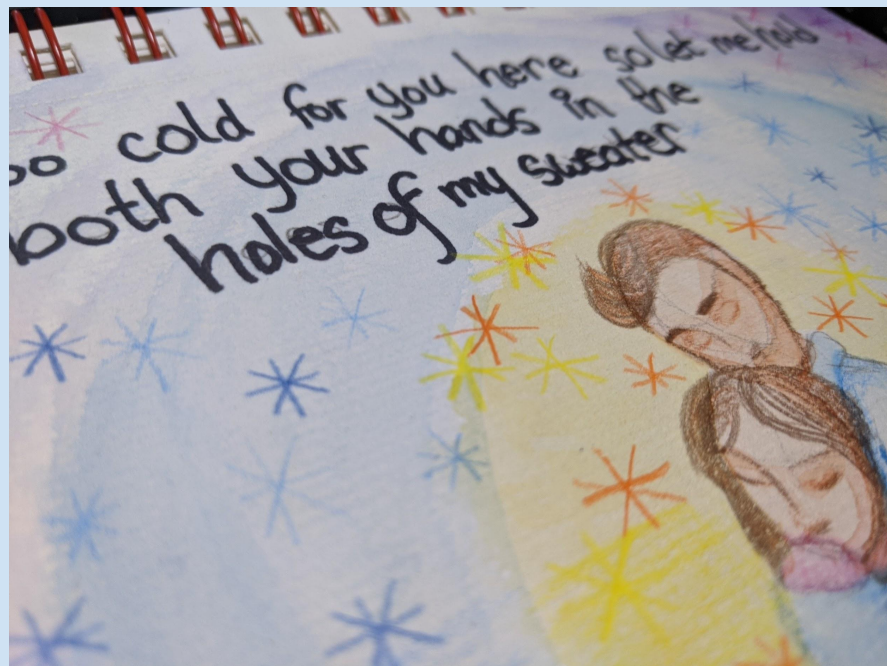 oo cold for you here so let me hold
both your hands in the
holes of my sweater